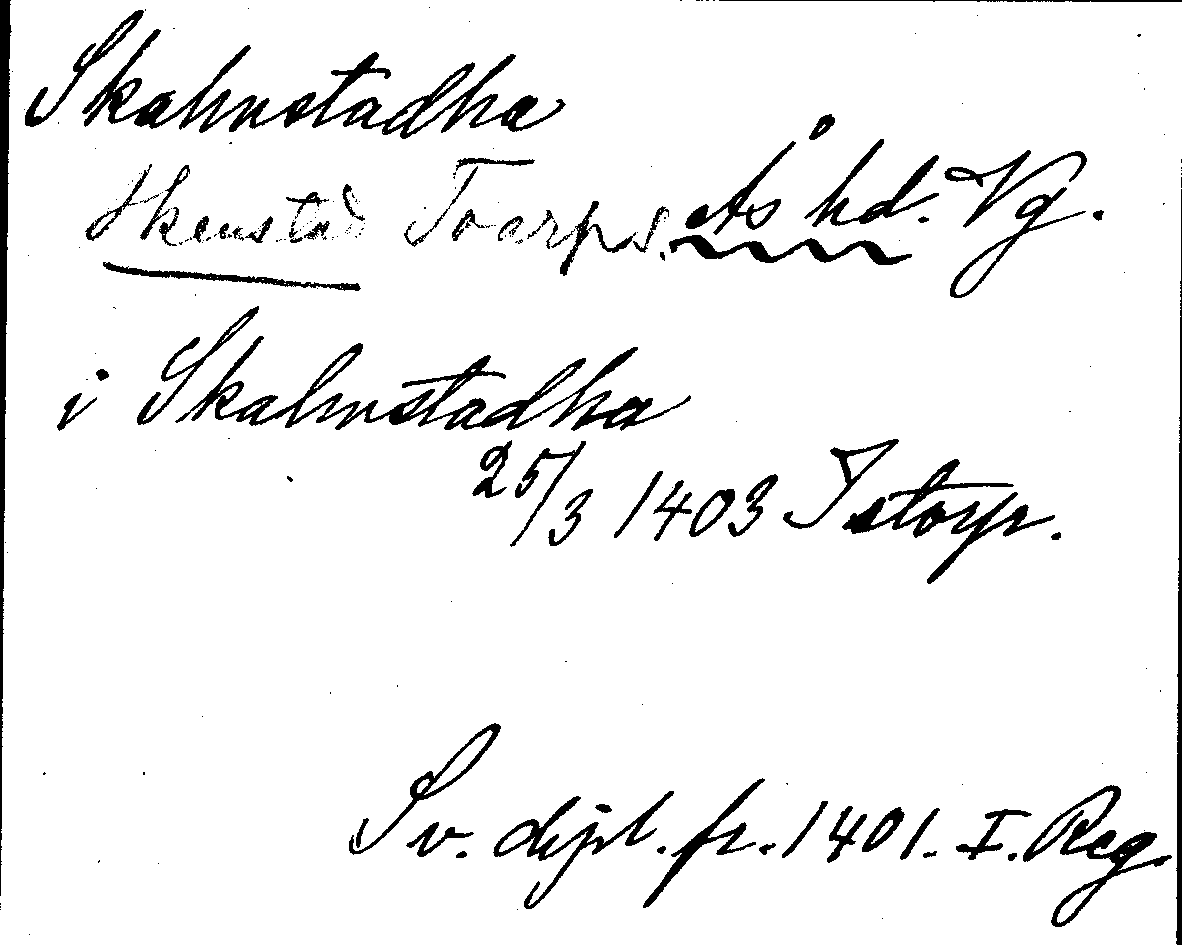 Skalmstadha
Skenstad Toarps s. Ås hd. Vg.
i Skalmstadha
25/3 1403 Istorp.
Sv. dipl. fr. 1401. I. Reg.